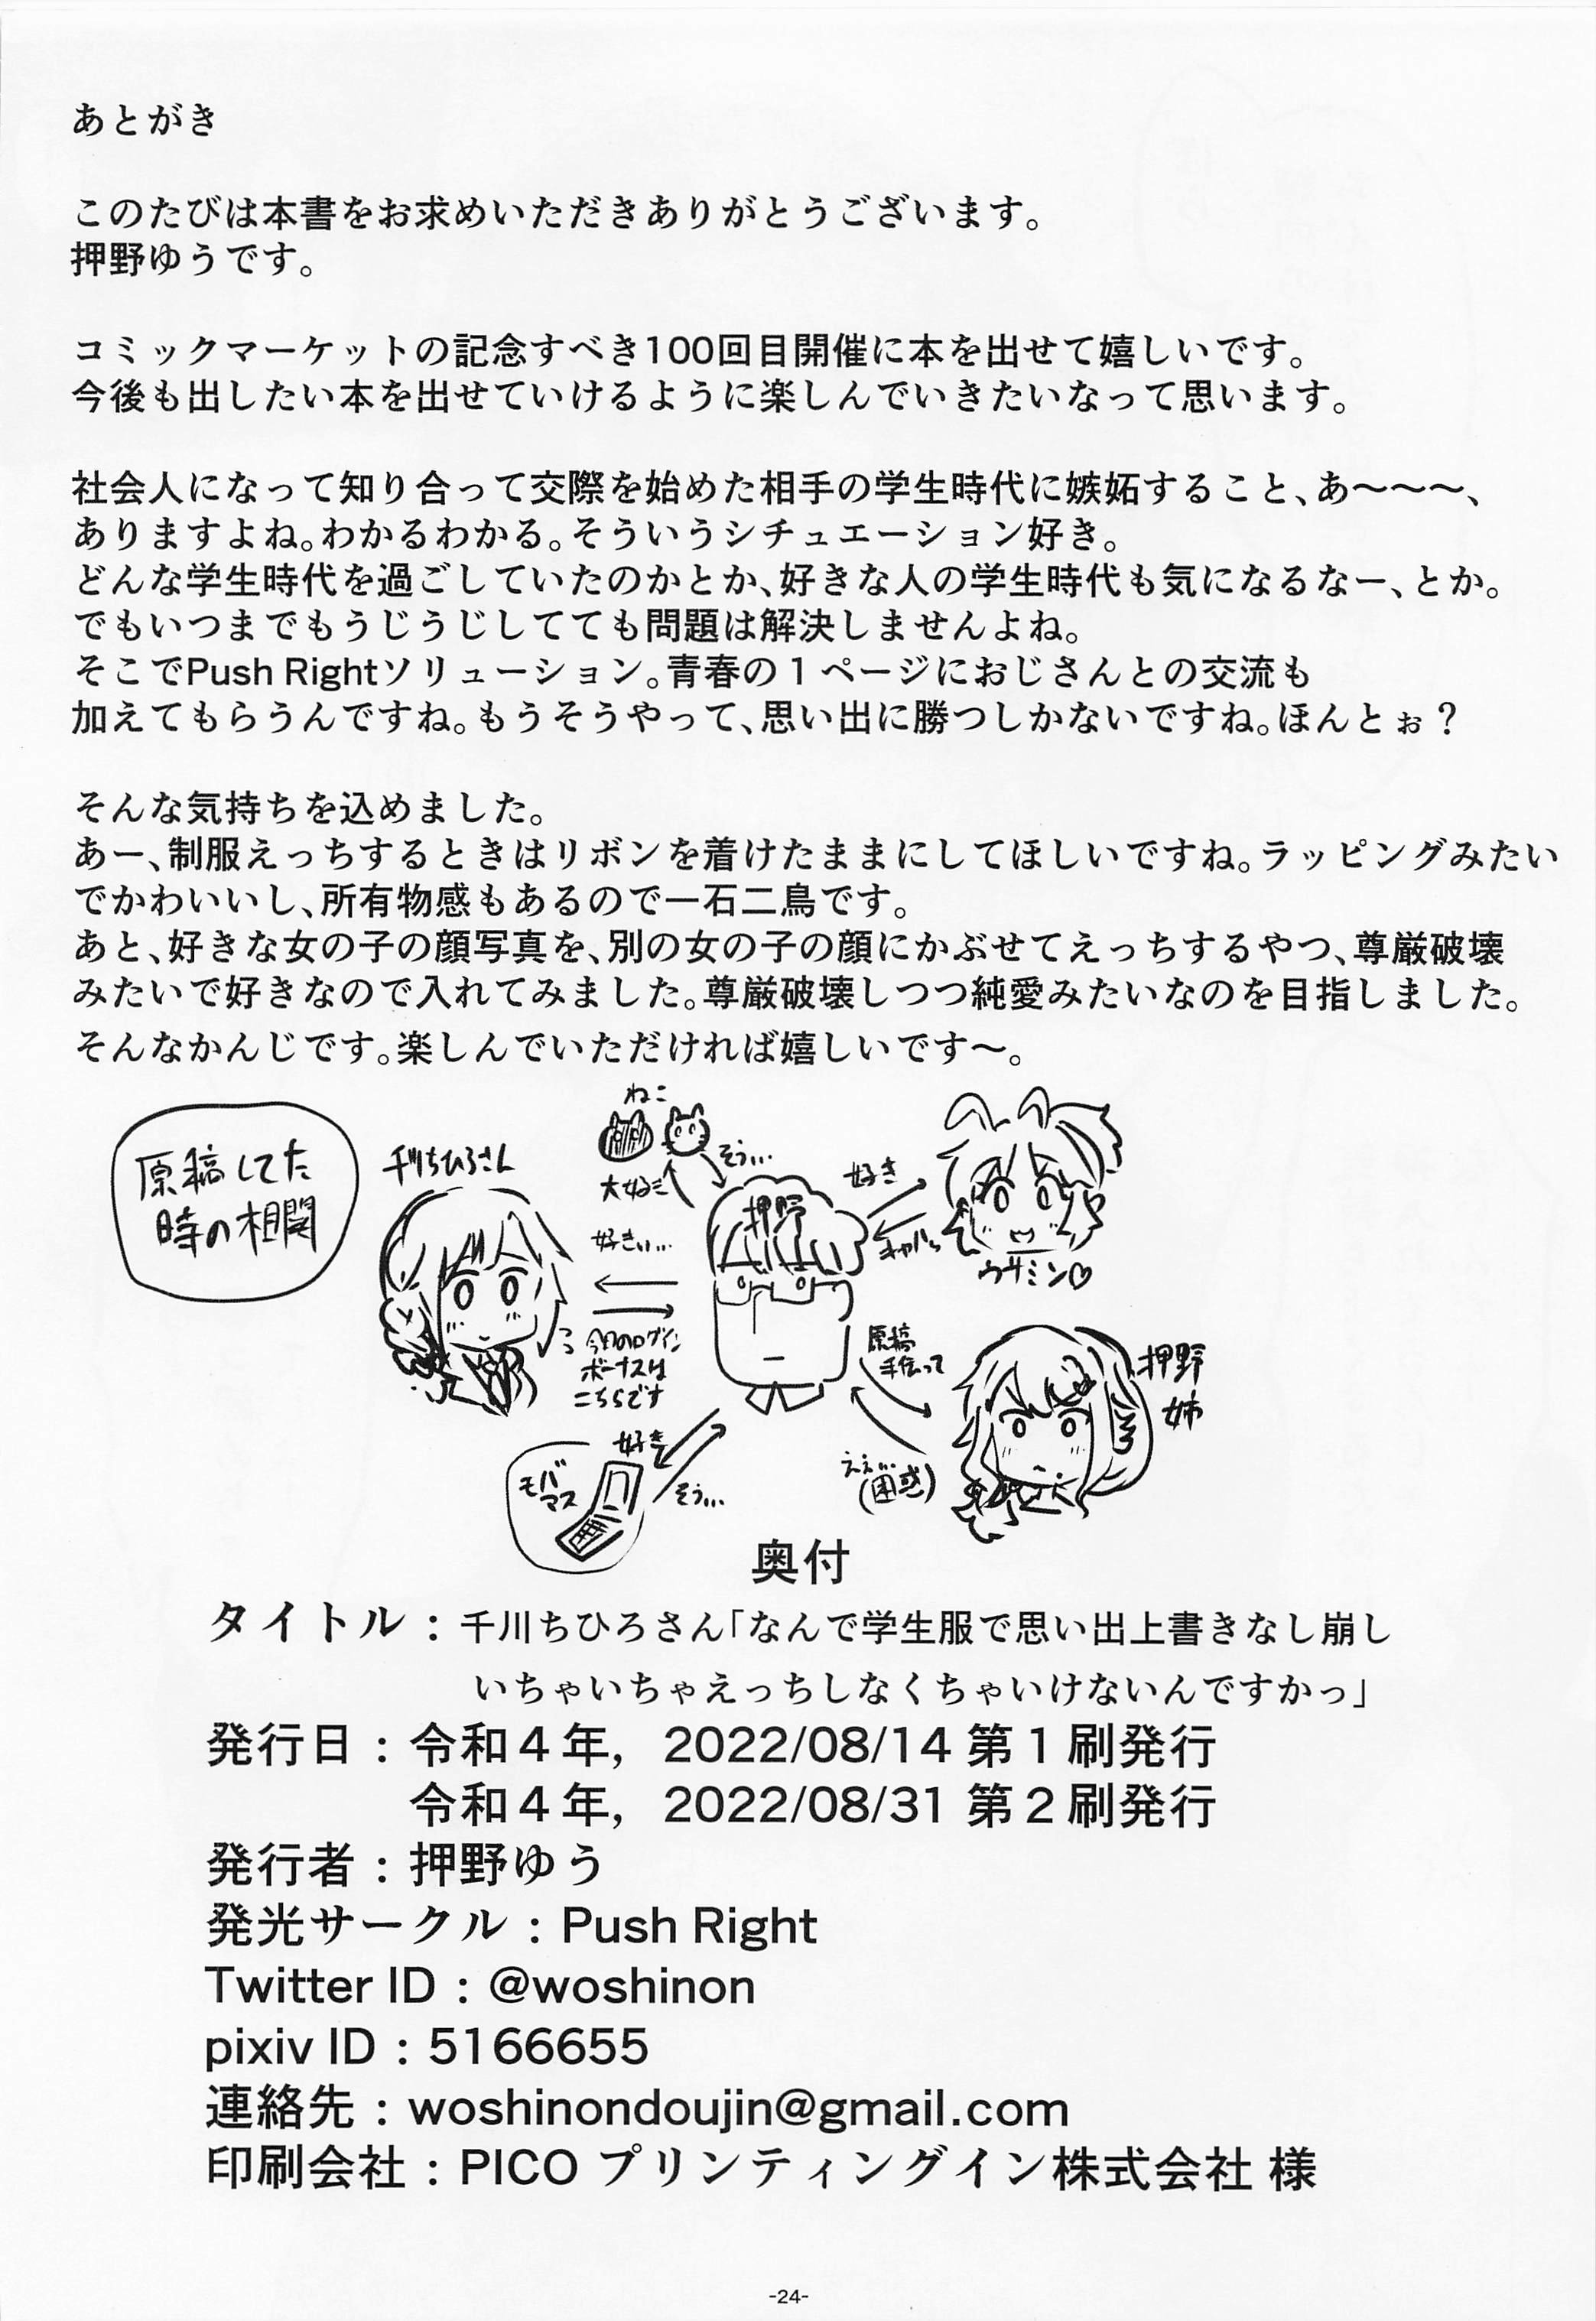 あとがき
このたびは本書をお求めいただきありがとうございます。
押野ゆうです。
コミックマーケットの記念すべき100回目開催に本を出せて嬉しいです。
今後も出したい本を出せていけるように楽しんでいきたいなって思います。
社会人になって知り合って交際を始めた相手の学生時代に嫉妬すること、あ～～～、
ありますよね。わかるわかる。そういうシチュエーション好き。
どんな学生時代を過ごしていたのかとか、好きな人の学生時代も気になるなー、とか。
でもいつまでもうじうじしてても問題は解決しませんよね。
そこでPush Rightソリューション。青春の１ページにおじさんとの交流も
加えてもらうんですね。もうそうやって、思い出に勝つしかないですね。ほんとぉ？
そんな気持ちを込めました。
あー、制服えっちするときはリボンを着けたままにしてほしいですね。ラッピングみたい
でかわいいし、所有物感もあるので一石二鳥です。
あと、好きな女の子の顔写真を、別の女の子の顔にかぶせてえっちするやつ、尊厳破壊
みたいで好きなので入れてみました。尊厳破壊しつつ純愛みたいなのを目指しました。
そんなかんじです。楽しんでいただければ嬉しいです～。
原稿してた
時の相関
千川ちひろさん
ねこ
大好き
そう...
押野
好き
ウサミン♡
好きぃ...
今日のログイン
ボーナスは
こちらです
原稿
手伝って
押野
姉
ええ...
(困惑)
モバ
マス
好き
そう...
奥付
タイトル：千川ちひろさん「なんで学生服で思い出上書きなし崩し
いちゃいちゃえっちしなくちゃいけないんですかっ」
発行日：令和４年，2022/08/14 第１刷発行
令和４年，2022/08/31 第２刷発行
発行者：押野ゆう
発光サークル：Push Right
Twitter ID：@woshinon
pixiv ID：5166655
連絡先：woshinondoujin@gmail.com
印刷会社：PICO プリンティングイン株式会社 様
-24-